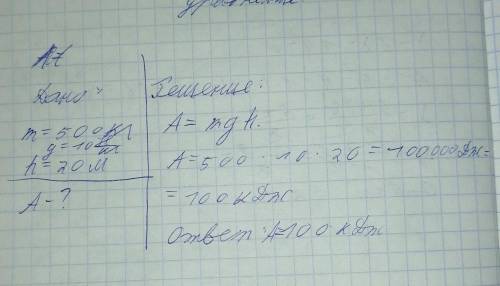 уравнение
№7
Дано:
m=500кг
g=10
h=20м
A-?
Решение:
A=mgh.
A=500·10·20=100.000Дж=
=100кДж
Ответ: A=100кДж